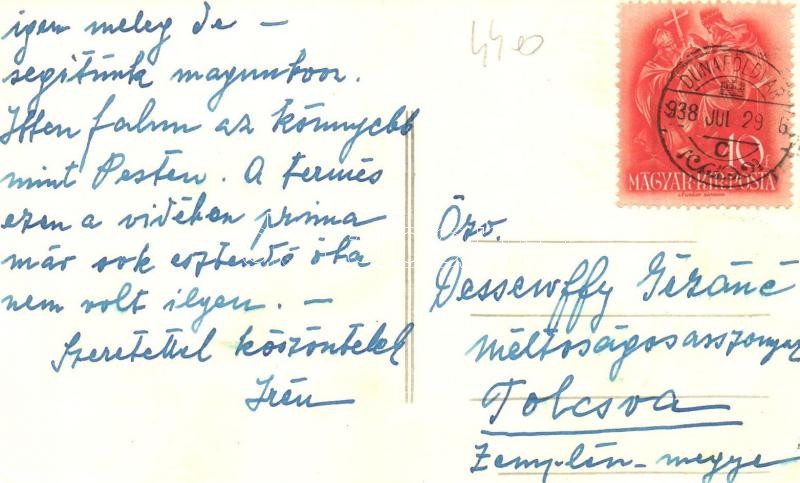 igen meleg de —
segitünk magunkon.
Itten falun az könnyebb
mint Pesten. A termés
ezen a vidéken prima
már sok esztendő óta
nem volt ilyen. —
Szeretettel köszöntelek
Irén
440
DUNAFÖLDVÁR
938 JUL 29 6
C
10f
MAGYAR KIR. POSTA
Özv.
Dessewffy Gézáné
méltóságosasszonynak
Tolcsva
Zemplén-megye